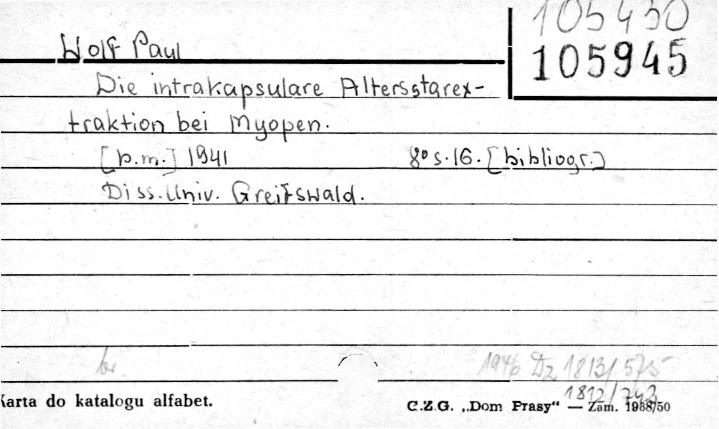 105430
105945
Wolf Paul
Die intrakapsulare Altersstarex-
traktion bei Myopen.
[b.m.] 1941 8° s.16. [bibliogr.]
Diss. Univ. Greifswald.
1946 Dz 1813/575
1812/743
Karta do katalogu alfabet.
C.Z.G. „Dom Prasy“ — Zam. 1988/50